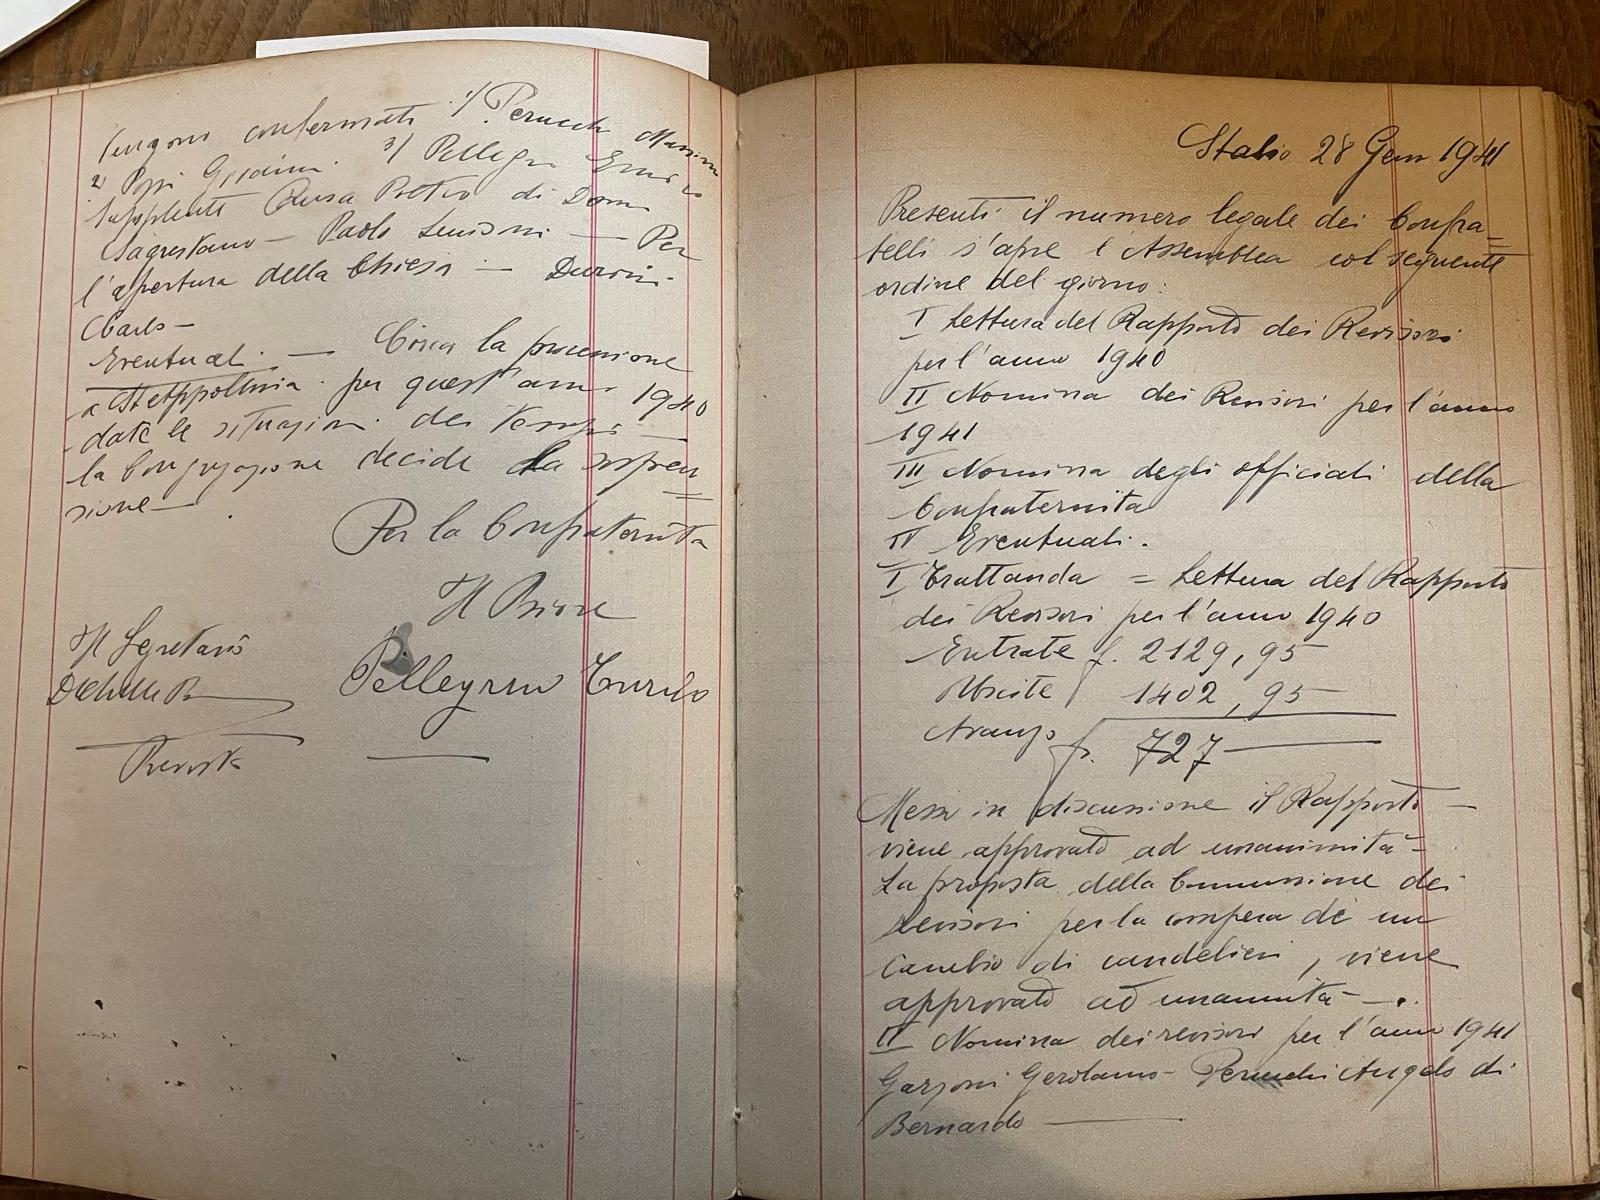 vengono confermati 1/ Perucchi
2/ 3/ Pellegri Enrico
supplenti Pietro di Dom
Sagrestano — Paolo — Per
l'apertura della Chiesa —
Carlo —
Eventuali. — Circa la processione
a per quest'anno 1940
date le situazioni dei tempi —
la Congregazione decide la sospen=
sione —
Per la Confraternita
Il Priore
Il Segretario
Pellegrini
Stabio 28 Genn 1941
Presenti il numero legale dei Confra=
telli s'apre l'Assemblea col seguente
ordine del giorno:
I Lettura del Rapporto dei Revisori
per l'anno 1940
II Nomina dei Revisori per l'anno
1941
III Nomina degli officiali della
Confraternita
IV Eventuali.
I Trattanda = Lettura del Rapporto
dei Revisori per l'anno 1940
Entrate f. 2129,95
Uscite 1402,95
Avanzo fr. 727 —
Messo in discussione il Rapporto —
viene approvato ad unanimità —
La proposta della Commissione dei
revisori per la compera di un
cambio di candelieri, viene
approvato ad unanimità —.
II Nomina dei revisori per l'anno 1941
Garzoni Gerolamo - Perucchi Angelo di
Bernardo —